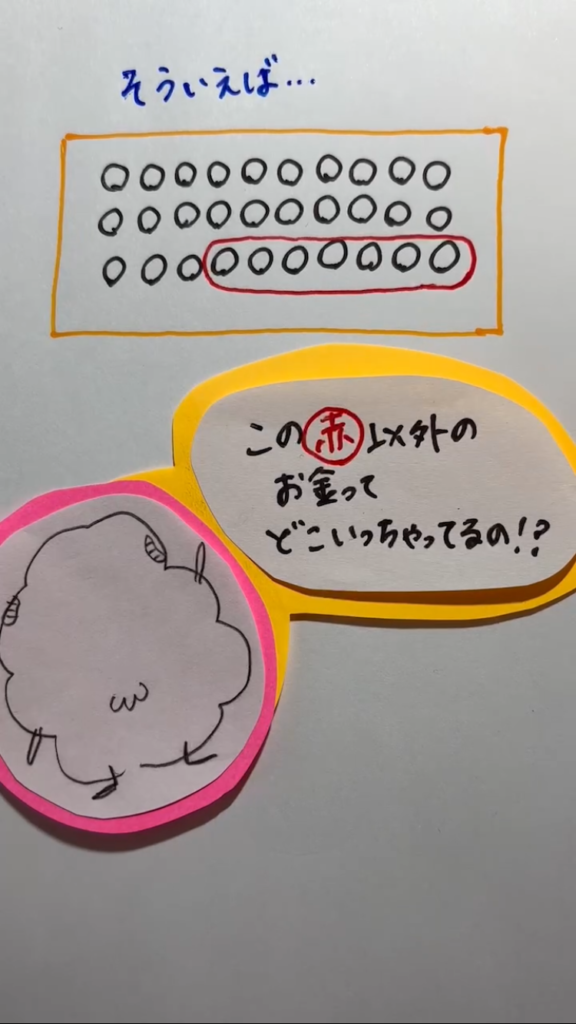 そういえば...
この赤以外の
お金って
どこいっちゃってるの!?